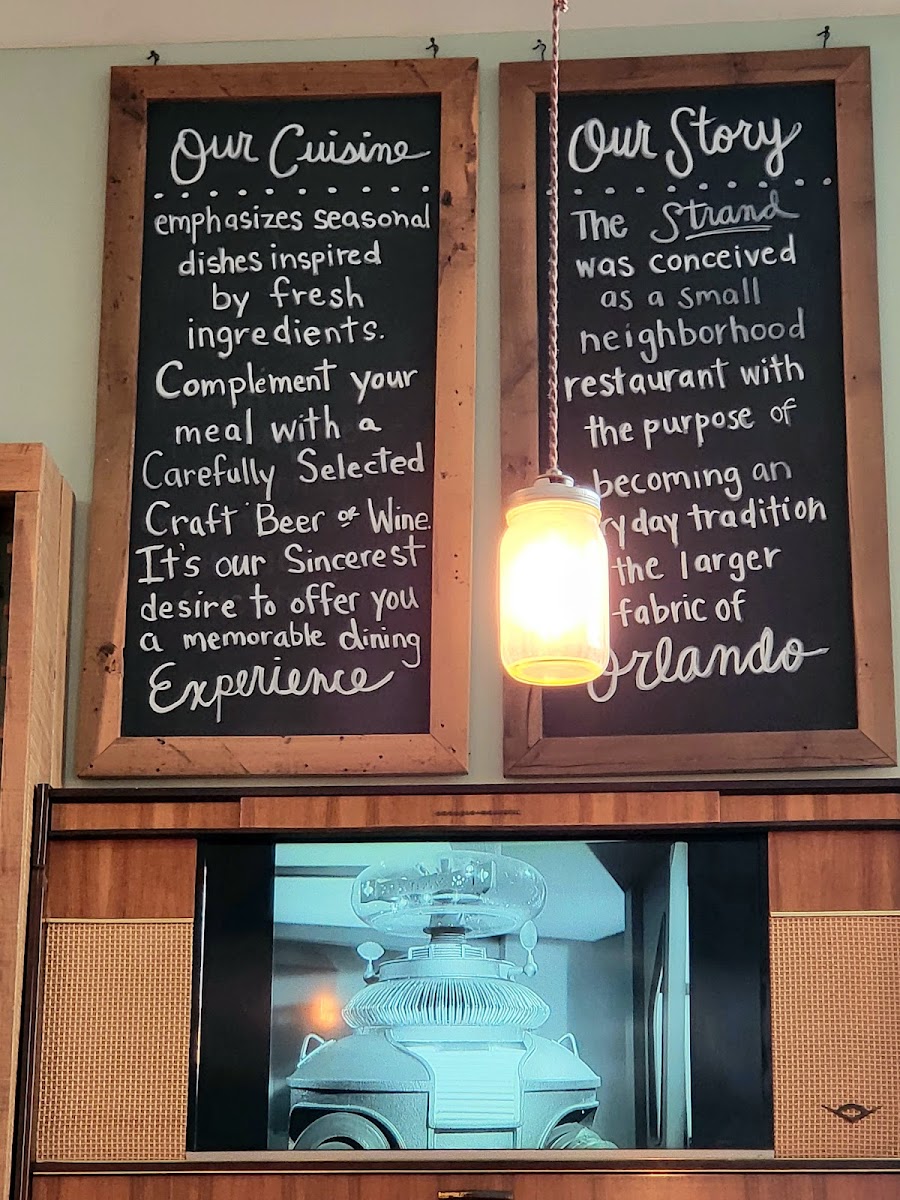 Our Cuisine
emphasizes seasonal
dishes inspired
by fresh
ingredients.
Complement your
meal with a
Carefully Selected
Craft Beer or Wine.
It's our Sincerest
desire to offer you
a memorable dining
Experience
Our Story
The Strand
was conceived
as a small
neighborhood
restaurant with
the purpose of
becoming an
ryday tradition
the larger
fabric of
Orlando